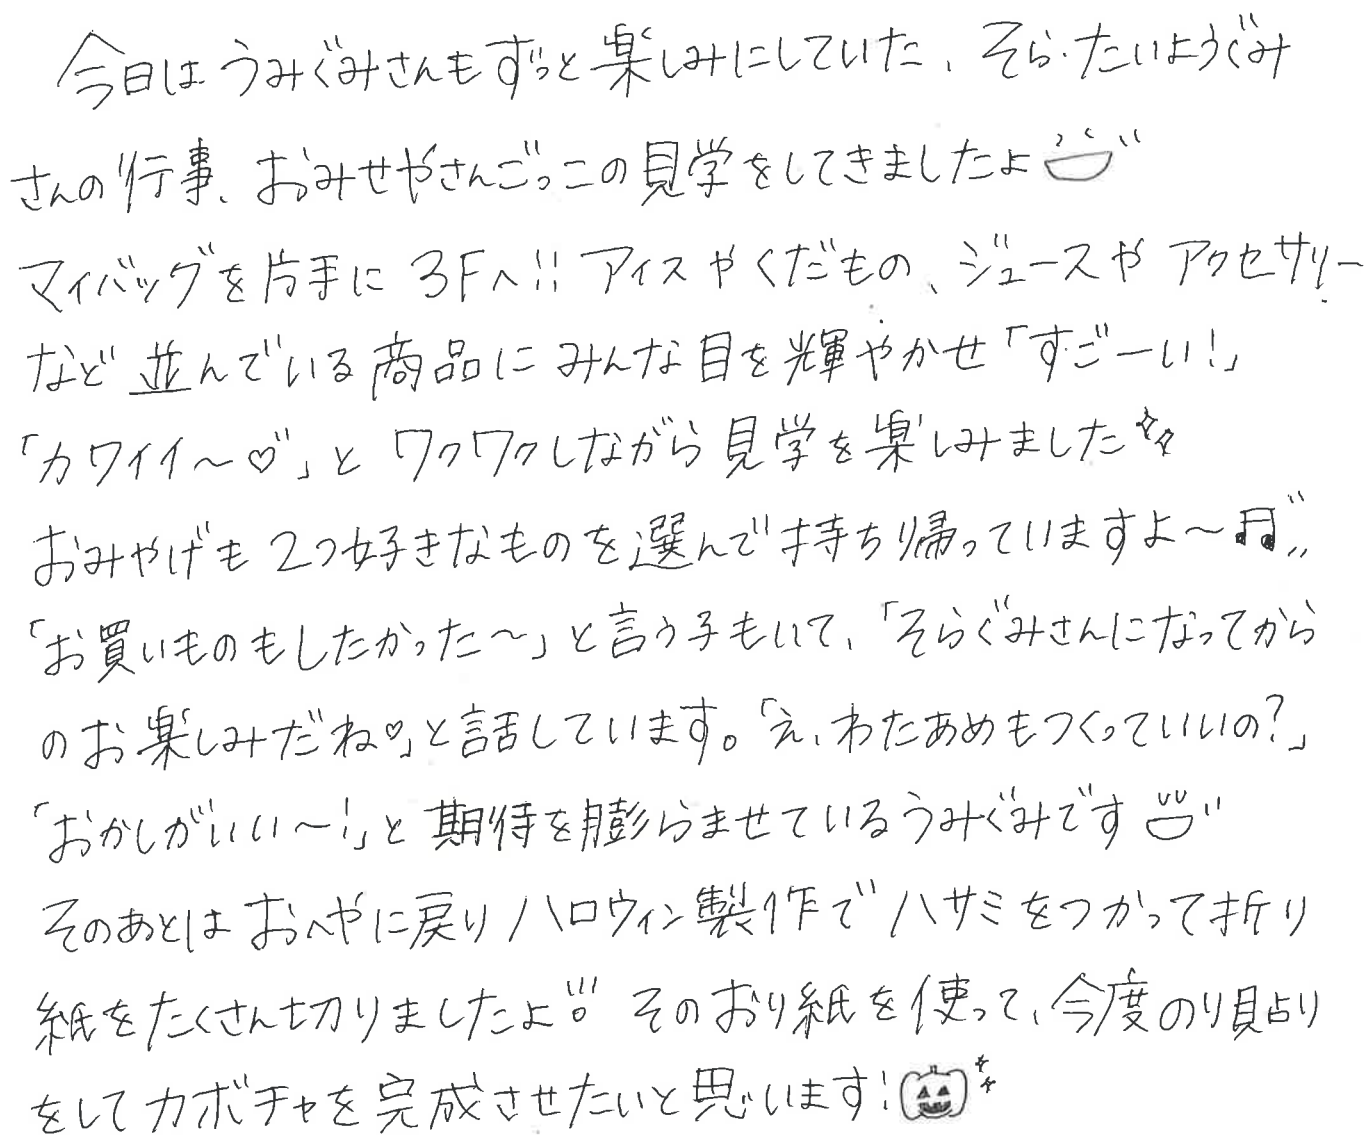 今日はうみぐみさんもずっと楽しみにしていた、そら・たいようぐみ
さんの行事、おみせやさんごっこの見学をしてきましたよ
マイバッグを片手に3Fへ!! アイスやくだもの、ジュースやアクセサリー
など並んでいる商品にみんな目を輝やかせ「すごーい!」
「カワイイ〜♡」とワクワクしながら見学を楽しみました
おみやげも2つ好きなものを選んで持ち帰っていますよ〜♫
「お買いものもしたかった〜」と言う子もいて、「そらぐみさんになってから
のお楽しみだね♡」と話しています。「え、わたあめもつくっていいの?」
「おかしがいい〜!」と期待を膨らませているうみぐみです
そのあとはおへやに戻りハロウィン製作でハサミをつかって折り
紙をたくさん切りましたよ!! そのおり紙を使って、今度のり貼り
をしてカボチャを完成させたいと思います!